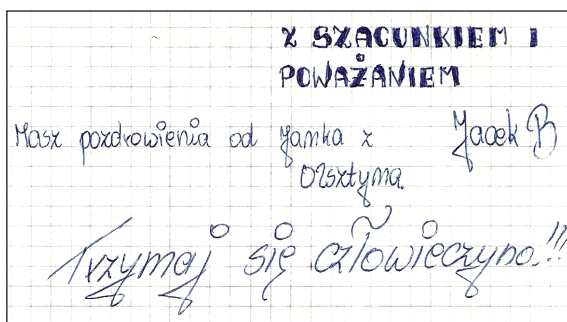 Z SZACUNKIEM I
POWAŻANIEM
Masz pozdrowienia od Janka z
Olsztyna
Jacek B
Trzymaj się człowieczyno!!!